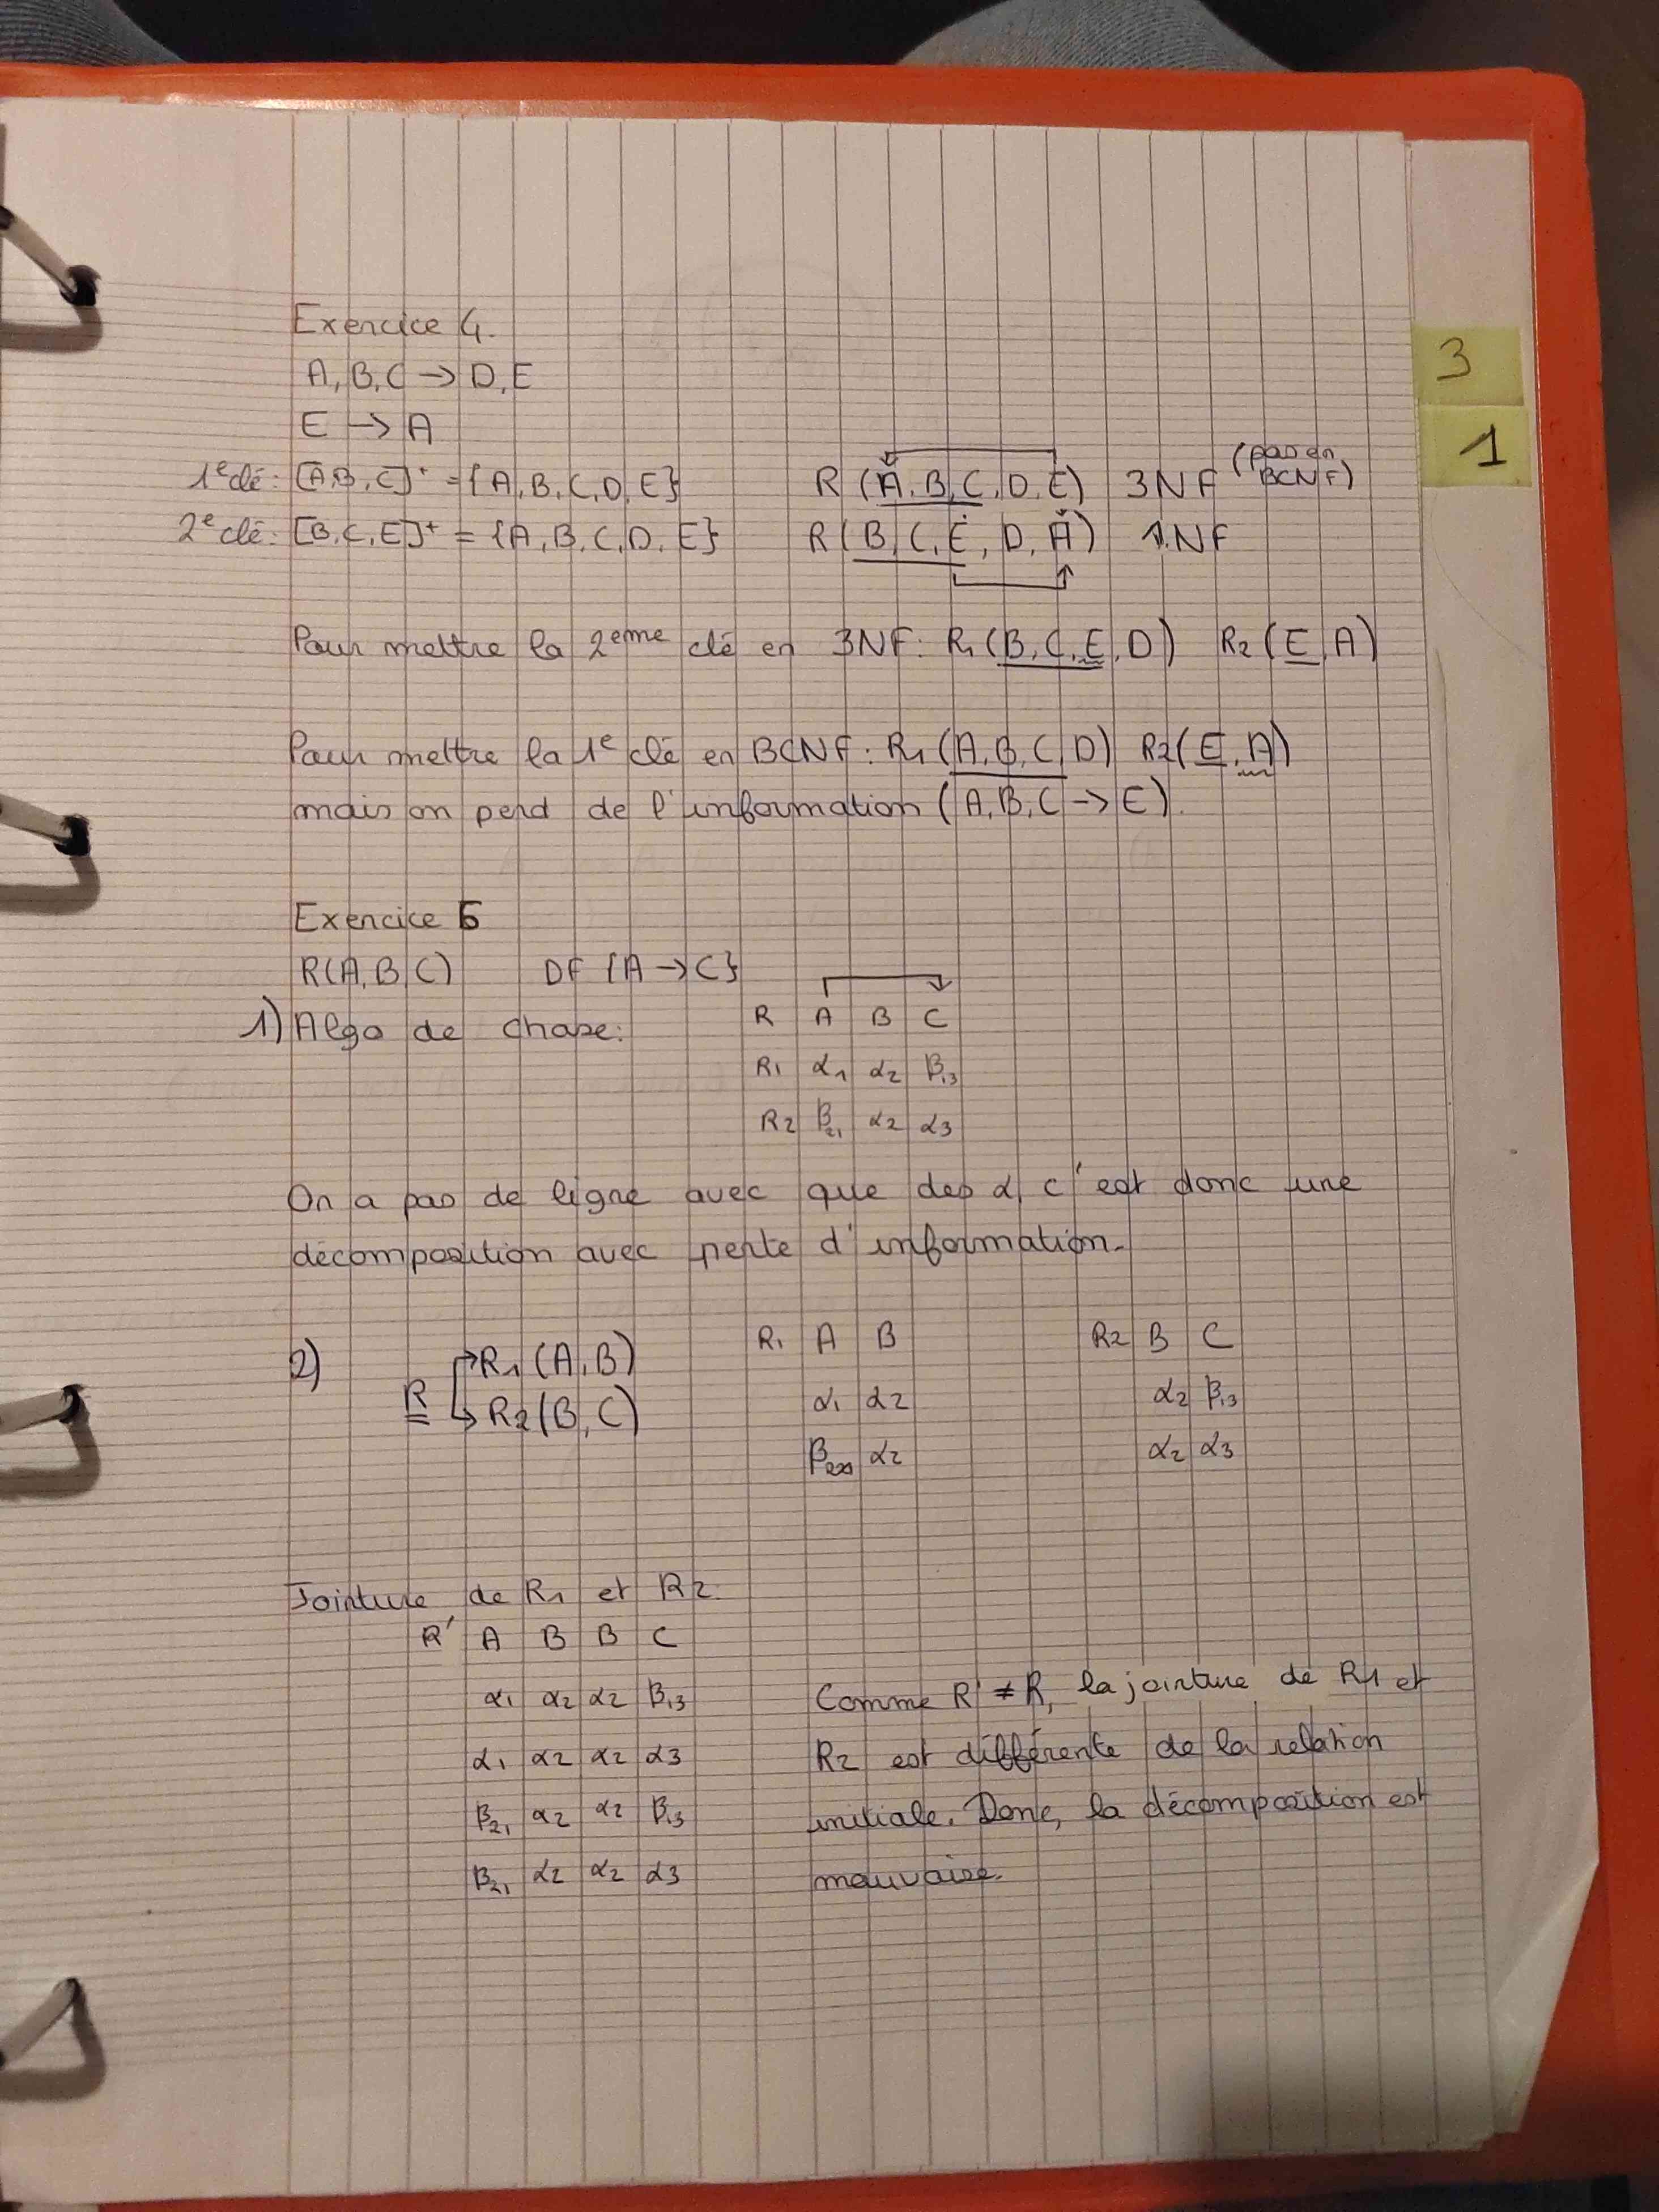 Exercice 4.
A, B, C → D, E
E → A
1e clé : [A,B,C]+ = {A, B, C, D, E} R (A, B, C, D, E) 3NF (pas en BCNF)
2e clé : [B,C,E]+ = {A, B, C, D, E} R (B, C, E, D, A) 1NF
Pour mettre la 2eme clé en 3NF : R1 (B, C, E, D) R2 (E, A)
Pour mettre la 1e clé en BCNF : R1 (A, B, C, D) R2 (E, A)
mais on perd de l'information (A, B, C → E).
Exercice 5
R(A, B, C) DF {A → C}
1) Algo de chase :
R A B C
R1 α1 α2 β13
R2 β21 α2 α3
On a pas de ligne avec que des α, c'est donc une
décomposition avec perte d'information.
2) R → R1 (A, B)
→ R2 (B, C)
R1 A B
α1 α2
α2
R2 B C
α2 β13
α2 α3
Jointure de R1 et R2.
R' A B B C
α1 α2 α2 β13
α1 α2 α2 α3
β21 α2 α2 β13
β21 α2 α2 α3
Comme R' ≠ R, la jointure de R1 et
R2 est différente de la relation
initiale. Donc, la décomposition est
mauvaise.
3
1